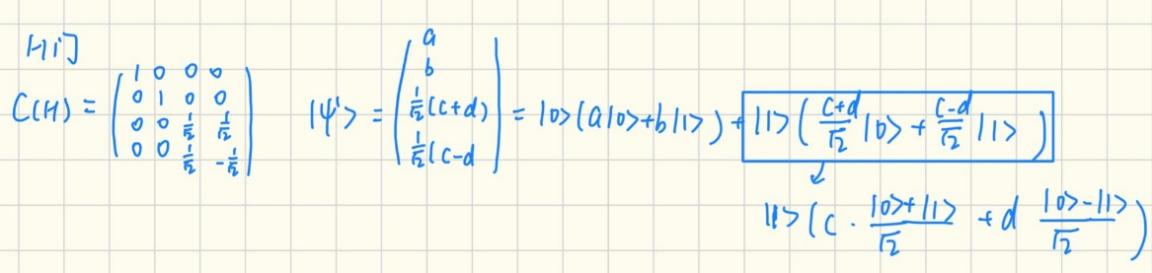 예제
C(H) = \begin{pmatrix} 1 & 0 & 0 & 0 \\ 0 & 1 & 0 & 0 \\ 0 & 0 & \frac{1}{\sqrt{2}} & \frac{1}{\sqrt{2}} \\ 0 & 0 & \frac{1}{\sqrt{2}} & -\frac{1}{\sqrt{2}} \end{pmatrix} |ψ'> = \begin{pmatrix} a \\ b \\ \frac{1}{\sqrt{2}}(c+d) \\ \frac{1}{\sqrt{2}}(c-d \end{pmatrix} = |0>(a|0>+b|1>) + |1>( \frac{c+d}{\sqrt{2}} |0> + \frac{c-d}{\sqrt{2}} |1> )
↙
|1>(c · \frac{|0>+|1>}{\sqrt{2}} + d \frac{|0>-|1>}{\sqrt{2}})